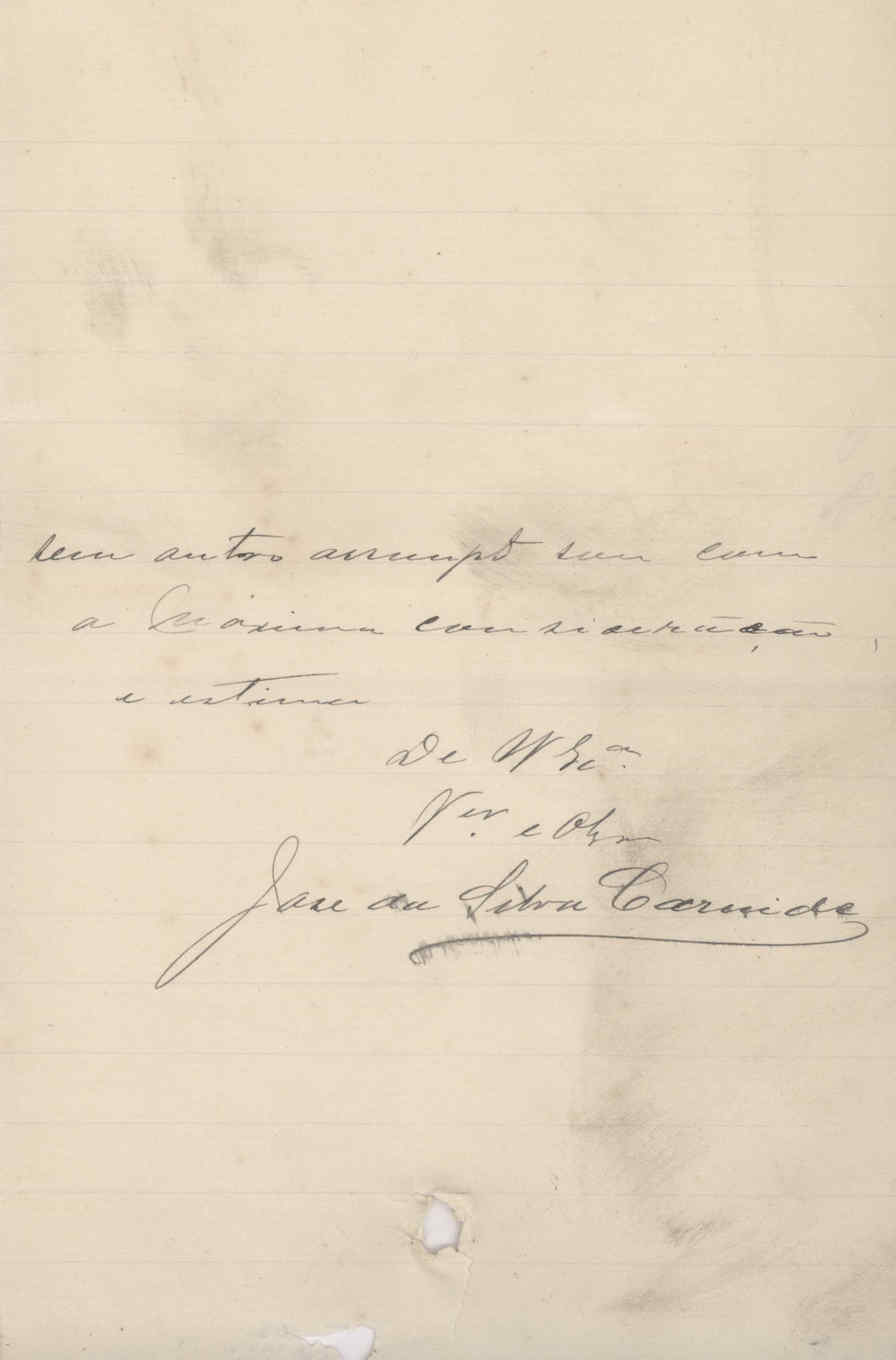 sem outro assumpto sou com
a Maxima consideração,
e estima
De V Exª.
Ven.or e Obr
Jose da Silva Carnide